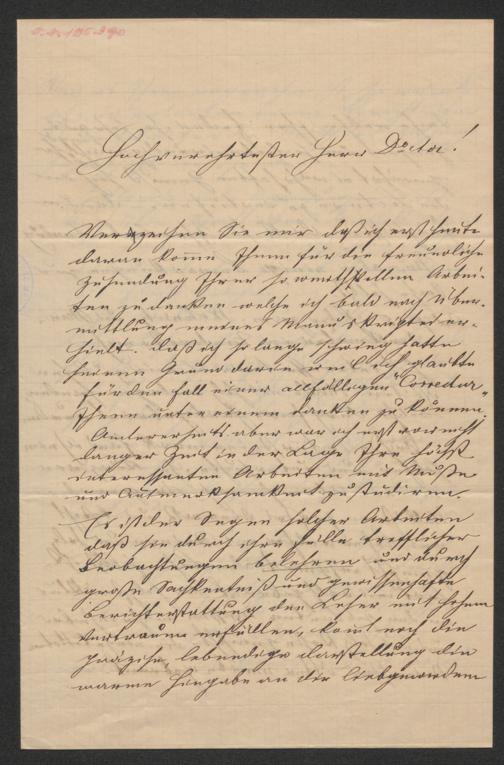 Hochverehrtester Herr Doctor!
Verzeihen Sie mir daß ich erst heute
daran komme Ihnen für die freundliche
Zusendung Ihrer so werthvollen Arbei-
ten zu danken welche ich bald nach Über-
mittlung meines Manuskriptes er-
hielt. daß ich so lange schwieg hatte
seinen Grund darin weil ich glaubte
für den Fall einer allfälligen "Correctur"
Ihnen unter einem danken zu können.
Andererseits aber war ich erst vor nicht
langer Zeit in der Lage Ihre höchst
interessanten Arbeiten mit Muße
und Aufmerksamkeit zu studiren.
Es ist der Segen solcher Arbeiten
daß sie durch ihre Fülle trefflicher
Beobachtungen belehren und durch
große Sachkentniß und gewissenhafte
Berichterstattung den Leser mit hohem
Vertrauen erfüllen, komt noch die
präzise, lebendige darstellung die
warme Hingabe an die liebgewordenen